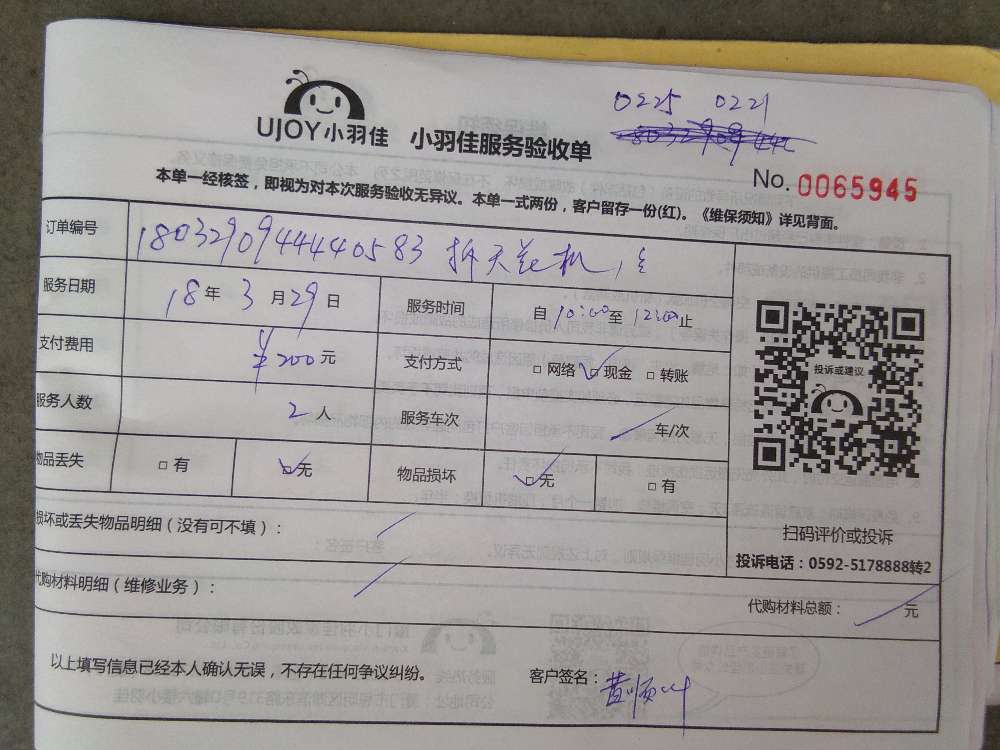 0225 0221
UJOY小羽佳 小羽佳服务验收单
No. 0065945
本单一经核签，即视为对本次服务验收无异议。本单一式两份，客户留存一份(红)。《维保须知》详见背面。
订单编号 18032909444440583 拆天花机，
服务日期 18年3月29日 服务时间 自10:00至12:00止
支付费用 ¥200元 支付方式 □网络 □现金 □转账
服务人数 2人 服务车次 车/次
物品丢失 □有 □无 物品损坏 □无 □有
投诉或建议
扫码评价或投诉
投诉电话：0592-5178888转2
损坏或丢失物品明细（没有可不填）：
代购材料明细（维修业务）： 代购材料总额： 元
以上填写信息已经本人确认无误，不存在任何争议纠纷。 客户签名：黄顺